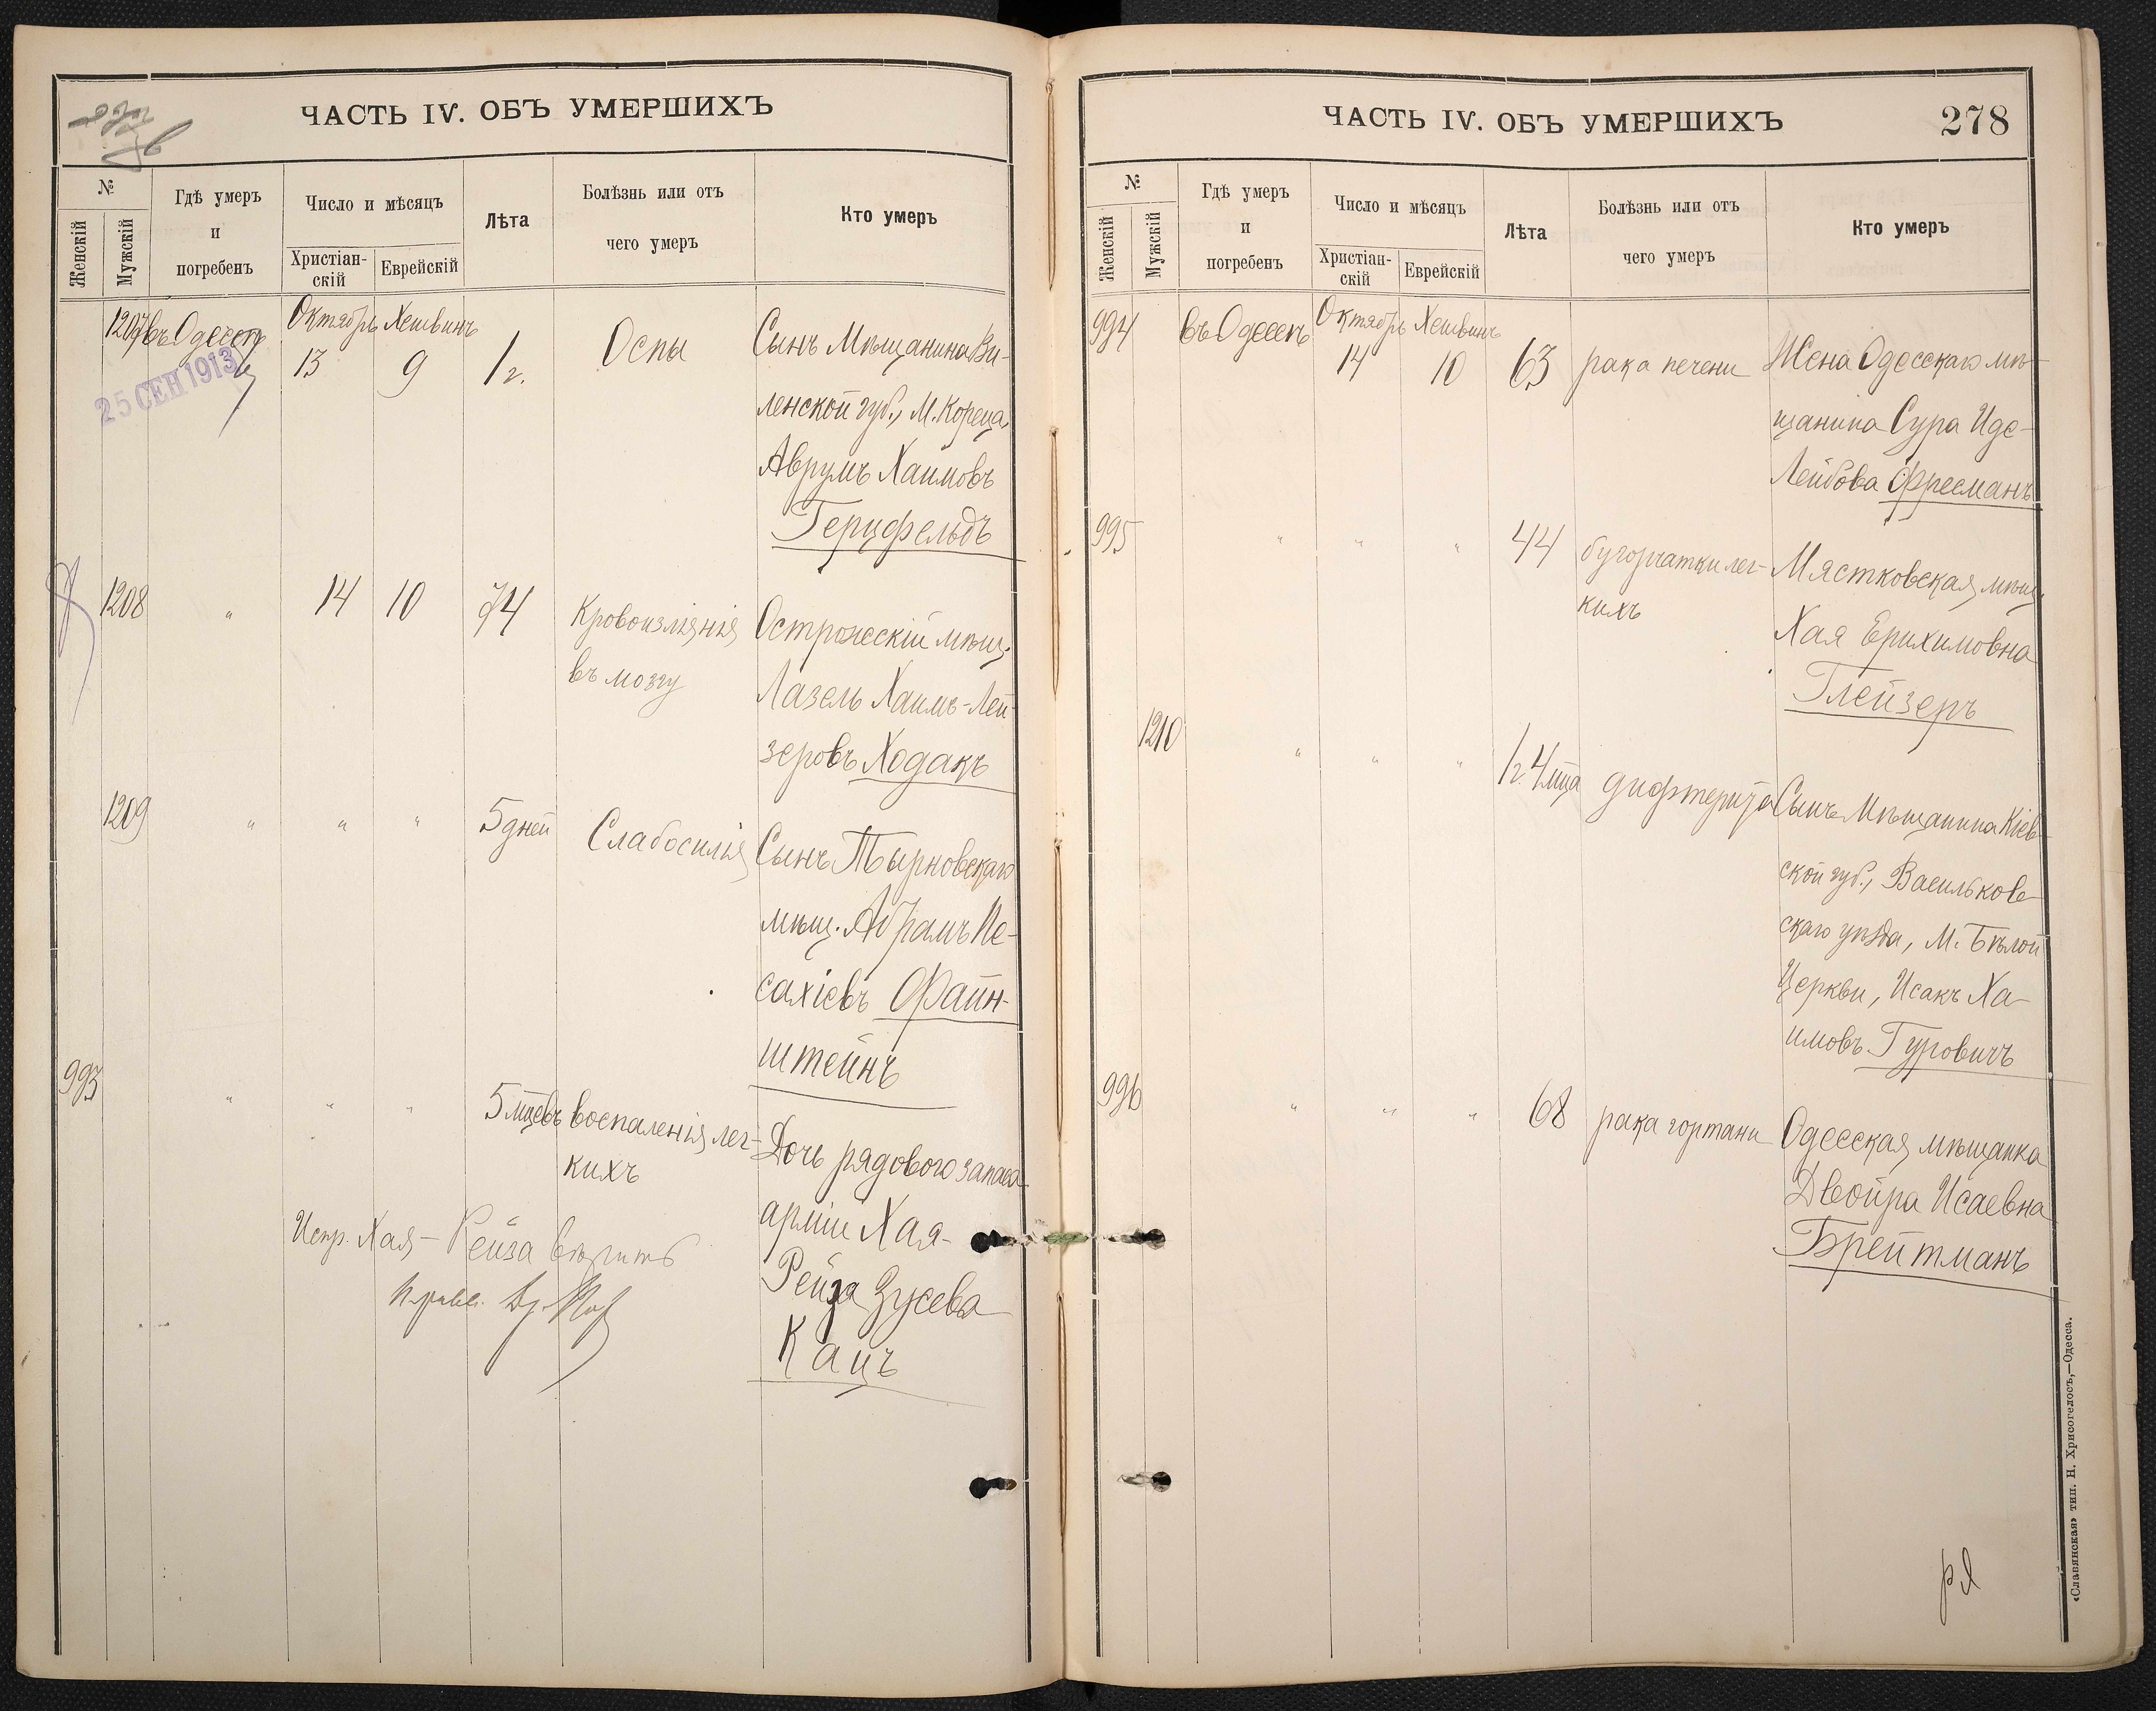 ЧАСТЬ IV. ОБЪ УМЕРШИХЪ
№
Женскій
Мужскій
Гдѣ умеръ
и
погребенъ
Число и мѣсяцъ
Христіан-
скій
Еврейскій
Лѣта
Болѣзнь или отъ
чего умеръ
Кто умеръ
1207 въ Одессѣ Октябрь 13 Хешвинъ 9 1 г. Оспы Сынъ Мѣщанина Ви-
ленской губ., М. Кореца,
Аврумъ Хаимовъ
Герцфельдъ
25 СЕН 1913
1208 " 14 10 74 Кровоизліянія Острожскій мѣщ.
въ мозгу Лазель Хаимъ-Лей-
зеровъ Ходакъ
1209 " " " 5 дней Слабосилія Сынъ Тырновскаго
мѣщ. Абрамъ Пе-
сахіевъ Файн-
штейнъ
993 " " " 5 мцевъ воспаленія лег- Дочь рядового запаса
кихъ арміи Хая-
Рейза Зусева
Кацъ
Испр. Хая-Рейза вѣрить
ЧАСТЬ IV. ОБЪ УМЕРШИХЪ
278
№
Женскій
Мужскій
Гдѣ умеръ
и
погребенъ
Число и мѣсяцъ
Христіан-
скій
Еврейскій
Лѣта
Болѣзнь или отъ
чего умеръ
Кто умеръ
994 въ Одессѣ Октябрь 14 Хешвинъ 10 63 рака печени Жена Одесскаго мѣ-
щанина Сура Иде-
Лейбова Фресманъ
995 " " " 44 бугорчатки лег- Мястковская мѣщ.
кихъ Хая Ерихимовна
Глейзеръ
1210 " " " 1 г. 4 мца дифтерита Сынъ Мѣщанина Кіев-
ской губ., Васильков-
скаго уѣзда, М. Бѣлой
Церкви, Исакъ Ха-
имовъ Гуровичъ
996 " " " 68 рака гортани Одесская мѣщанка
Двойра Исаевна
Брейтманъ
«Славянская» тип. Н. Хрисогелосъ,—Одесса.